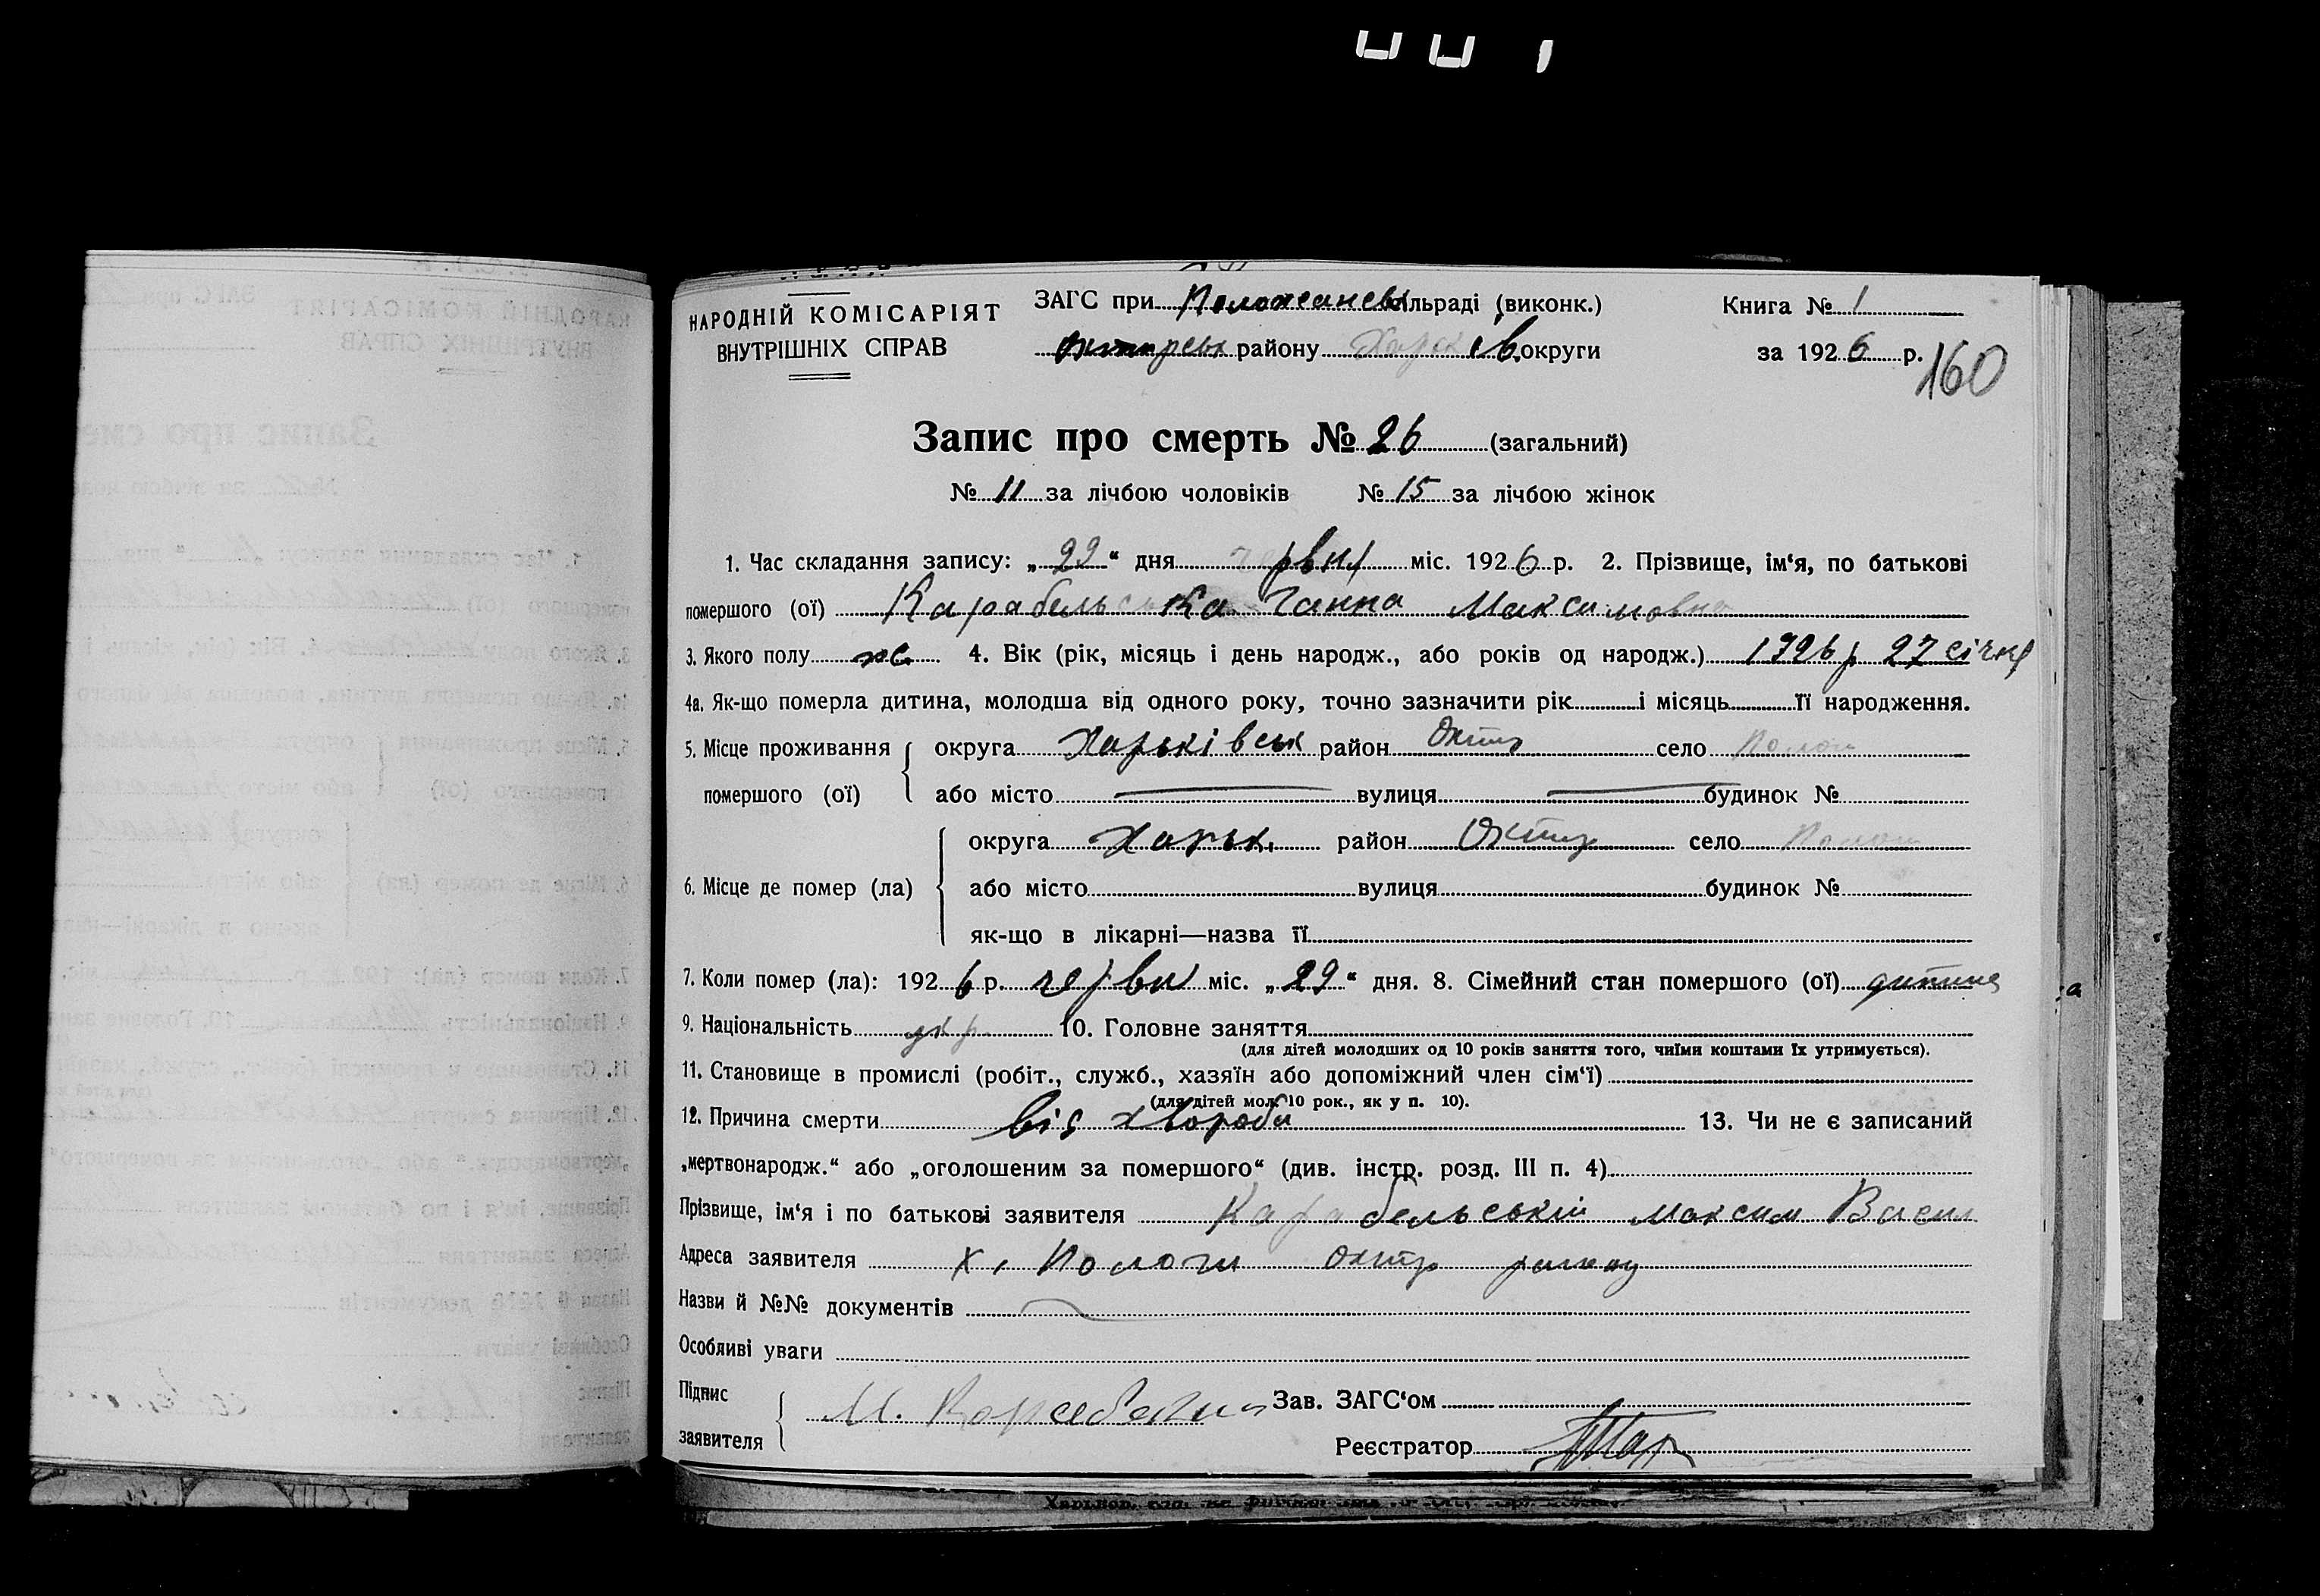 НАРОДНІЙ КОМІСАРІЯТ
ВНУТРІШНІХ СПРАВ
ЗАГС при сільраді (виконк.)
району Харків округи
Книга № 1
за 1926 р.
160
Запис про смерть № 26 (загальний)
№ 11 за лічбою чоловіків № 15 за лічбою жінок
1. Час складання запису: „29“ дня червня міс. 1926 р. 2. Прізвище, ім‘я, по батькові
помершого (ої) Карабельська Ганна Максимовна
3. Якого полу ж. 4. Вік (рік, місяць і день народж., або років од народж.) 1926 р 27 січня
4а. Як-що померла дитина, молодша від одного року, точно зазначити рік і місяць її народження.
5. Місце проживання помершого (ої) округа Харьківськ район Охтир село
або місто вулиця будинок №
6. Місце де помер (ла) округа Харьк. район Охтир село
або місто вулиця будинок №
як-що в лікарні—назва її
7. Коли помер (ла): 1926 р. червня міс. „29“ дня. 8. Сімейний стан помершого (ої) дитина
9. Національність укр. 10. Головне заняття
(для дітей молодших од 10 років заняття того, чиїми коштами їх утримується).
11. Становище в промислі (робіт., служб., хазяїн або допоміжний член сім‘ї)
(для дітей мол. 10 рок., як у п. 10).
12. Причина смерти від хвороби 13. Чи не є записаний
„мертвонародж.“ або „оголошеним за помершого“ (див. інстр. розд. III п. 4)
Прізвище, ім‘я і по батькові заявителя Карабельський Максим Васил
Адреса заявителя х. Пологи Охтир району
Назви й №№ документів
Особливі уваги
Підпис заявителя М. Зав. ЗАГС‘ом
Реєстратор